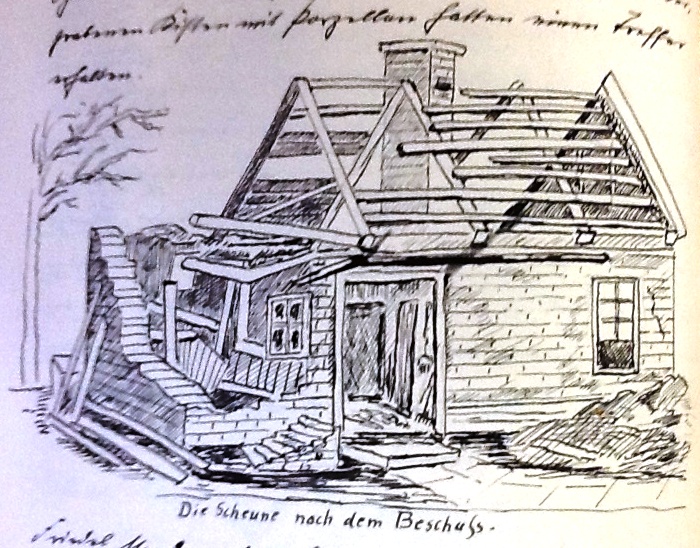 grabenen Kisten mit Porzellan hatten einen Treffer
erhalten.
Die Scheune nach dem Beschuß.
Friedel